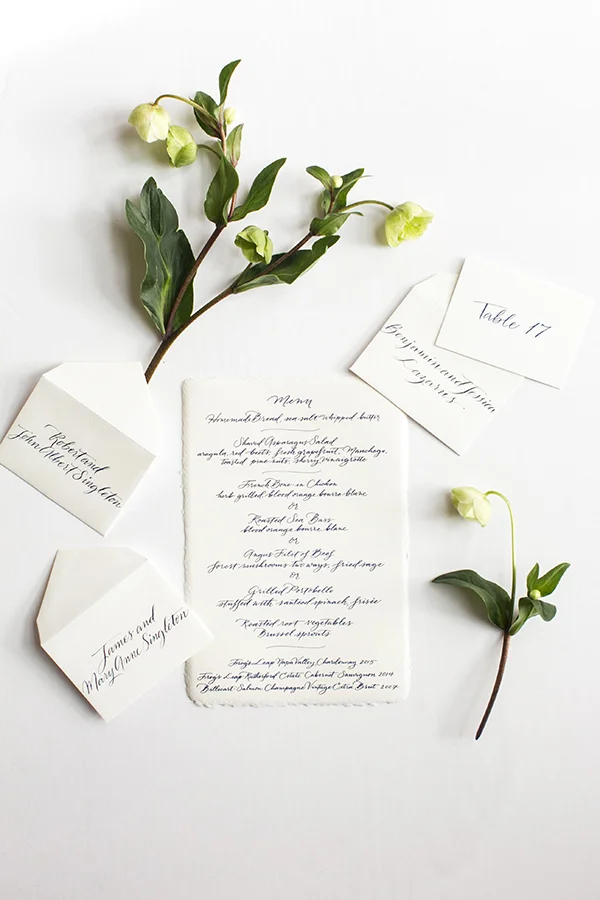 Table 17
Benjamin and Jessica
Lazarus
Robert and
John Albert Singleton
James and
Mary Anne Singleton
Menu
Homemade Bread, sea salt whipped butter
Shaved Asparagus Salad
arugula, red beets, fresh grapefruit, Manchego,
toasted pine nuts, sherry vinaigrette
French Bone in Chicken
herb grilled, blood orange beurre blanc
or
Roasted Sea Bass
blood orange beurre blanc
or
Angus Filet of Beef
forest mushrooms two ways, fried sage
or
Grilled Portobello
stuffed with sautéed spinach, frisée
Roasted root vegetables
Brussel sprouts
Frog's Leap Napa Valley Chardonnay 2015
Frog's Leap Rutherford Estate Cabernet Sauvignon 2014
Salmon Champagne Vintage Brut 2007